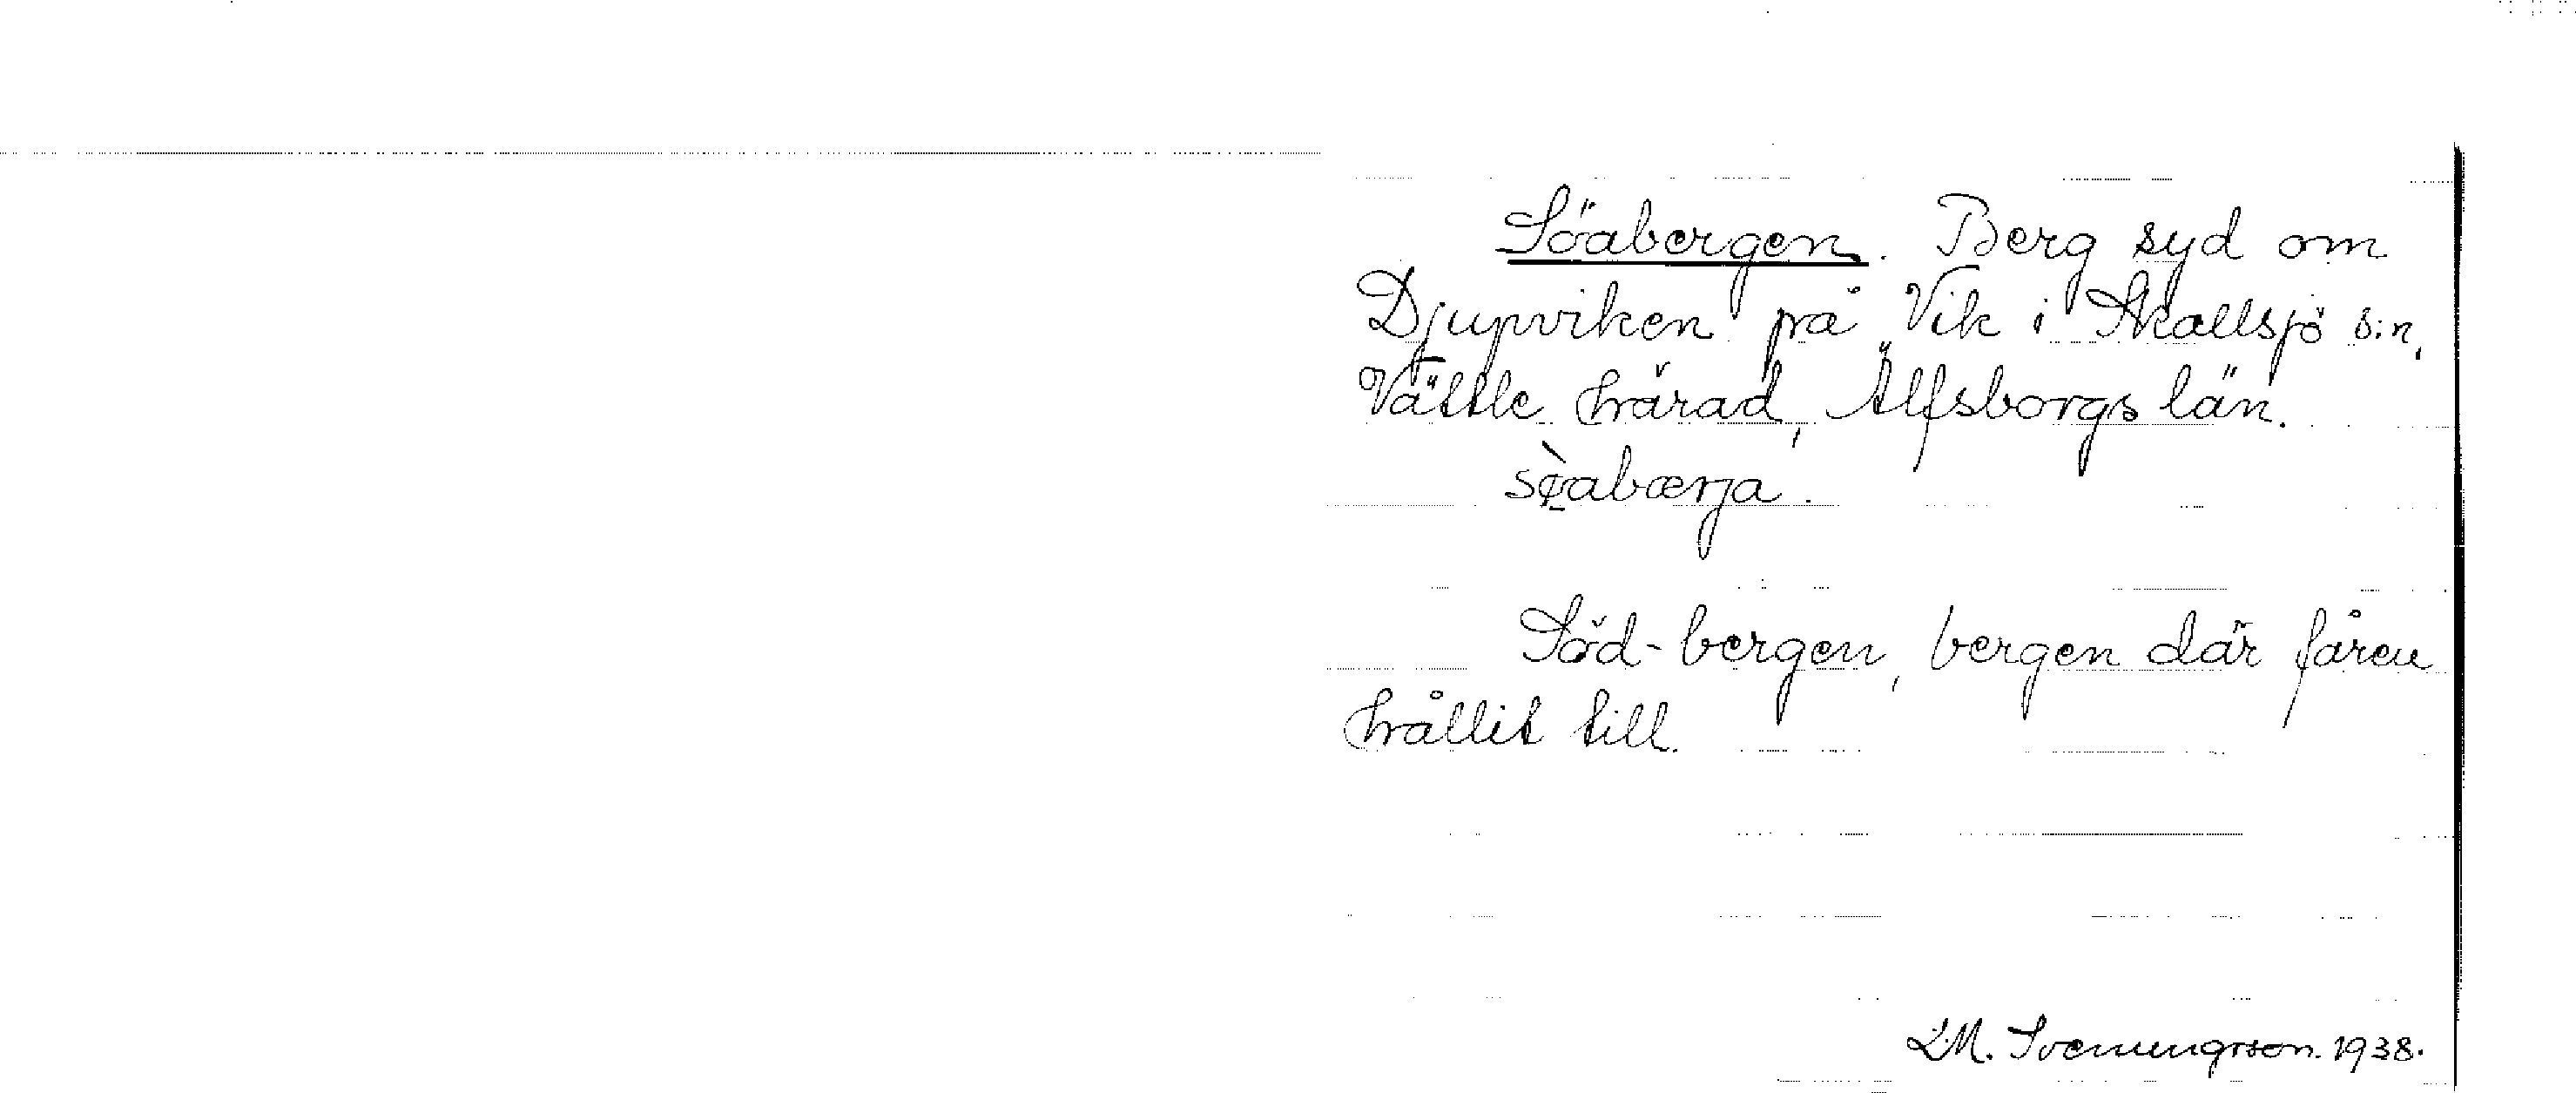 Söabergen. Berg syd om
Djupviken på Vik i Skallsjö s:n,
Vättle härad, Älfsborgs län.
sø̀abærja.
Söd-bergen, bergen där fåren
hållit till.
L.M. Svenungsson. 1938.